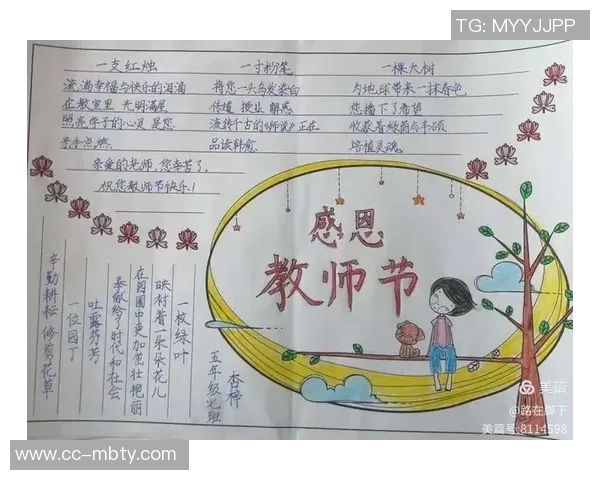 TG: MYYJJPP
一支红烛
流淌幸福与快乐的泪滴
在教室里 光明满屋
照亮学子的心灵 是您
亲手点燃
一寸粉笔
将您一头乌发染白
传道 授业 解惑
流转千古的《师说》正在
品读韩愈
一棵大树
为地球带来一抹春色
您播下了希望
收获着绿荫与丰硕
培植灵魂
亲爱的老师,您辛苦了。
祝您教师节快乐!
感恩
教师节
一枚绿叶
映衬着一朵朵花儿
在园圃中更加茁壮艳丽
奉献给了时代和社会
吐露芬芳
一位园丁
辛勤耕耘 修剪花草
五年级七班
杏梓
美篇
@路在脚下
美篇号:8114598
www.cc-mbty.com